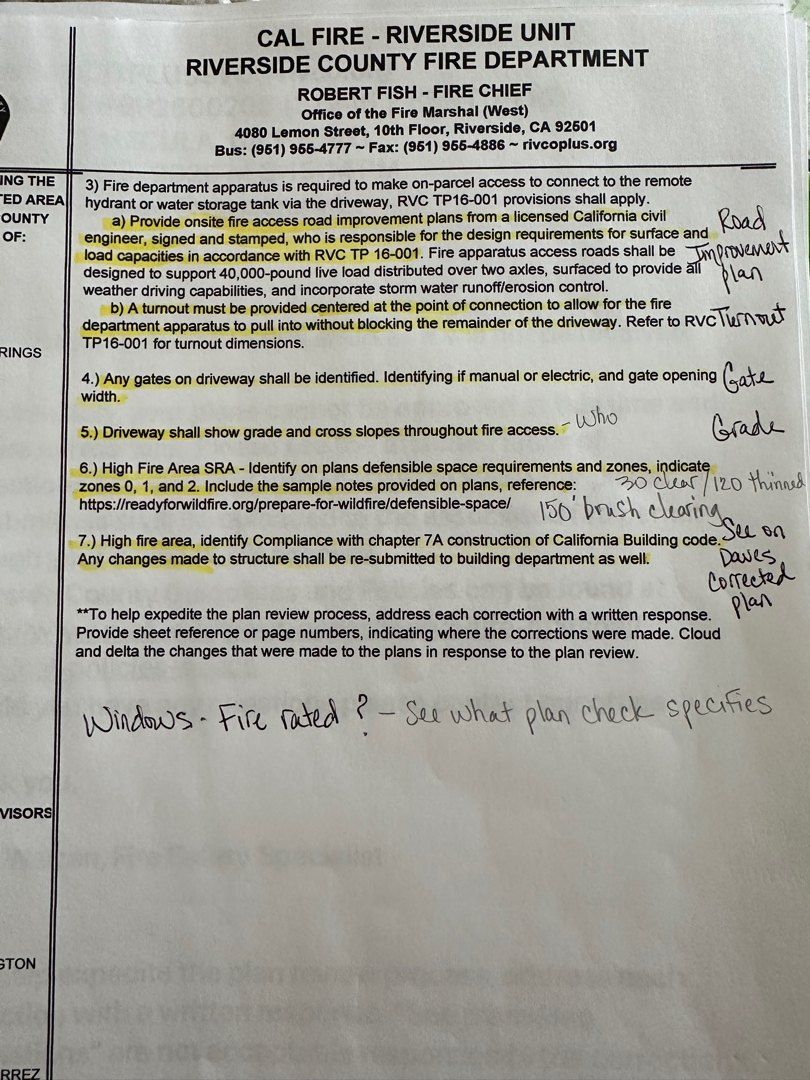 CAL FIRE - RIVERSIDE UNIT
RIVERSIDE COUNTY FIRE DEPARTMENT
ROBERT FISH - FIRE CHIEF
Office of the Fire Marshal (West)
4080 Lemon Street, 10th Floor, Riverside, CA 92501
Bus: (951) 955-4777 ~ Fax: (951) 955-4886 ~ rivcoplus.org
ING THE
TED AREA
OUNTY
OF:
RINGS
VISORS
GTON
RREZ
3) Fire department apparatus is required to make on-parcel access to connect to the remote
hydrant or water storage tank via the driveway, RVC TP16-001 provisions shall apply.
a) Provide onsite fire access road improvement plans from a licensed California civil
engineer, signed and stamped, who is responsible for the design requirements for surface and
load capacities in accordance with RVC TP 16-001. Fire apparatus access roads shall be
designed to support 40,000-pound live load distributed over two axles, surfaced to provide all
weather driving capabilities, and incorporate storm water runoff/erosion control.
Road
Improvement
plan
b) A turnout must be provided centered at the point of connection to allow for the fire
department apparatus to pull into without blocking the remainder of the driveway. Refer to RVC
TP16-001 for turnout dimensions.
Turnout
4.) Any gates on driveway shall be identified. Identifying if manual or electric, and gate opening
width.
Gate
5.) Driveway shall show grade and cross slopes throughout fire access. - Who
Grade
6.) High Fire Area SRA - Identify on plans defensible space requirements and zones, indicate
zones 0, 1, and 2. Include the sample notes provided on plans, reference:
https://readyforwildfire.org/prepare-for-wildfire/defensible-space/
30 clear/120 thinned
150' brush clearing
7.) High fire area, identify Compliance with chapter 7A construction of California Building code.
Any changes made to structure shall be re-submitted to building department as well.
See on
Daves
Corrected
plan
**To help expedite the plan review process, address each correction with a written response.
Provide sheet reference or page numbers, indicating where the corrections were made. Cloud
and delta the changes that were made to the plans in response to the plan review.
Windows - Fire rated ? - See what plan check specifies